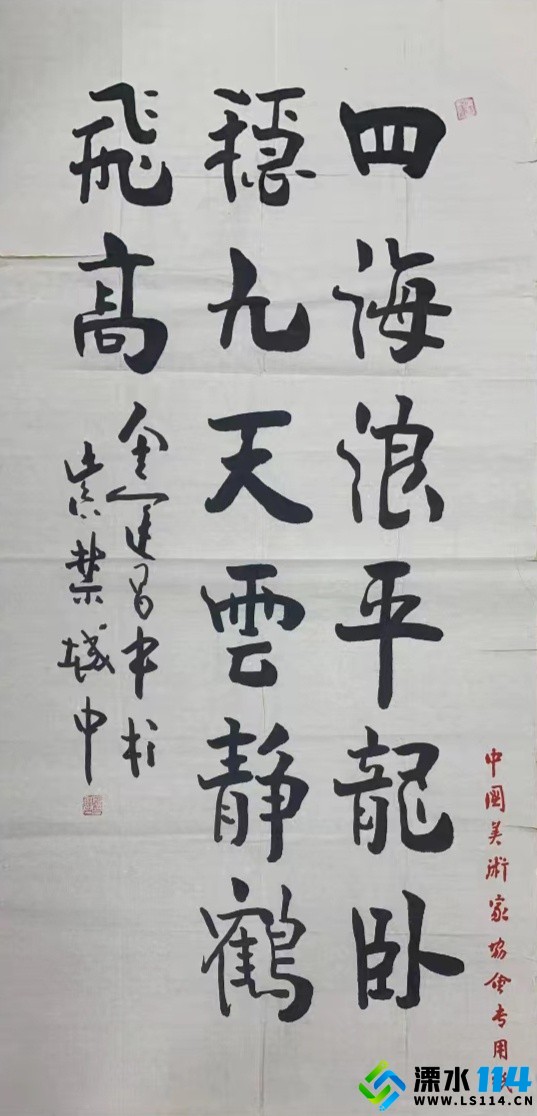 四海浪平龍卧
穩九天雲靜鶴
飛高
金運昌书於
紫禁城中
中國美術家協會专用紙
溧水114
WWW.LS114.CN